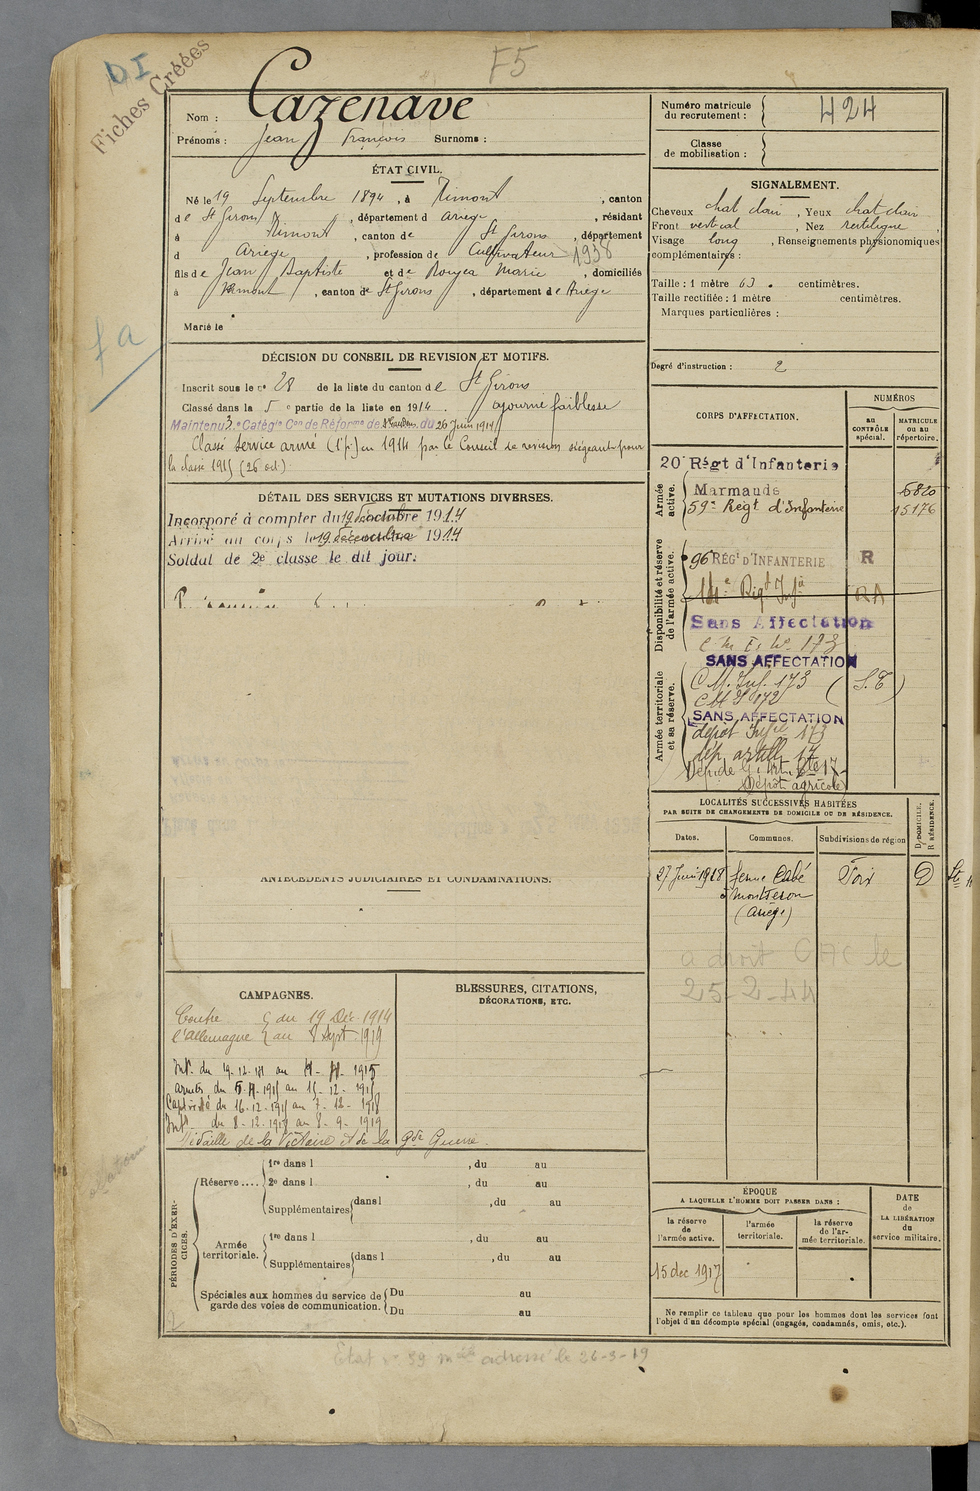 F5
DI
Fiches Créées
Nom : Cazenave
Prénoms : Jean François Surnoms :
Numéro matricule
du recrutement : 424
Classe
de mobilisation :
ÉTAT CIVIL.
Né le 19 Septembre 1894, à Rimont, canton
de St Girons, département d Ariège, résidant
à Rimont, canton de St Girons, département
d Ariège, profession de Cultivateur 1938
fils de Jean Baptiste et de Rouja Marie, domiciliés
à Rimont, canton de St Girons, département de Ariège
Marié le
fa
SIGNALEMENT.
Cheveux chat clair, Yeux chat clair
Front vertical, Nez rectiligne,
Visage long, Renseignements physionomiques
complémentaires :
Taille : 1 mètre 63 centimètres.
Taille rectifiée : 1 mètre centimètres.
Marques particulières :
Degré d'instruction : 2
DÉCISION DU CONSEIL DE REVISION ET MOTIFS.
Inscrit sous le n° 28 de la liste du canton de St Girons
Classé dans la 5e partie de la liste en 1914. ajourné faiblesse
Maintenu 3e Catégie Con de Réforme de du 26 Juin 1941
Classé service armé (1e p.) en 1914 par le Conseil de revision siégeant pour
la classe 1915 (26 oct)
DÉTAIL DES SERVICES ET MUTATIONS DIVERSES.
Incorporé à compter du 19 décembre 1914
Arrivé au corps le 19 décembre 1914
Soldat de 2e classe le dit jour.
ANTÉCÉDENTS JUDICIAIRES ET CONDAMNATIONS.
CORPS D'AFFECTATION.
NUMÉROS
au
CONTRÔLE
spécial.
MATRICULE
ou au
répertoire.
Armée
active.
20e Régt d'Infanterie
Marmande 6820
59e Régt d'Infanterie 15176
Disponibilité et réserve
de l'armée active.
96 RÉGt D'INFANTERIE R
14e Régt Infie RA
Sans Affectation
SANS AFFECTATION
Armée territoriale
et sa réserve.
C M. Inf. 173 (S.T)
C M I 172
SANS AFFECTATION
dépôt Infie 173
dép artill 17
Dépôt agricole
LOCALITÉS SUCCESSIVES HABITÉES
PAR SUITE DE CHANGEMENTS DE DOMICILE OU DE RÉSIDENCE.
D DOMICILE.
R RÉSIDENCE.
Dates. Communes. Subdivisions de région
27 Juin 1928 ferme Cabé Foix D
à Montseron
(Ariège)
a droit CAC le
25-2-44
CAMPAGNES.
Contre du 19 Déc 1914
l'Allemagne au 8 Sept. 1919
Intr. du 19-12-14 au 1915
armées du 1915 au 15-12-1915
Captivité du 16-12-1915 au 7-12-1918
Intr. du 8-12-1918 au 8-9-1919
Médaille de la Victoire et de la Gde Guerre.
BLESSURES, CITATIONS,
DÉCORATIONS, ETC.
PÉRIODES D'EXER-
CICES.
Réserve.... 1re dans l , du au
2e dans l , du au
Supplémentaires dans l , du au
Armée
territoriale. 1re dans l , du au
Supplémentaires dans l , du au
Spéciales aux hommes du service de
garde des voies de communication. Du au
Du au
ÉPOQUE
A LAQUELLE L'HOMME DOIT PASSER DANS :
la réserve
de
l'armée active.
l'armée
territoriale.
la réserve
de l'ar-
mée territoriale.
DATE
de
LA LIBÉRATION
du
service militaire.
15 dec 1917
Ne remplir ce tableau que pour les hommes dont les services font
l'objet d'un décompte spécial (engagés, condamnés, omis, etc.).
Etat n° 59 mle adressé le 26-3-19